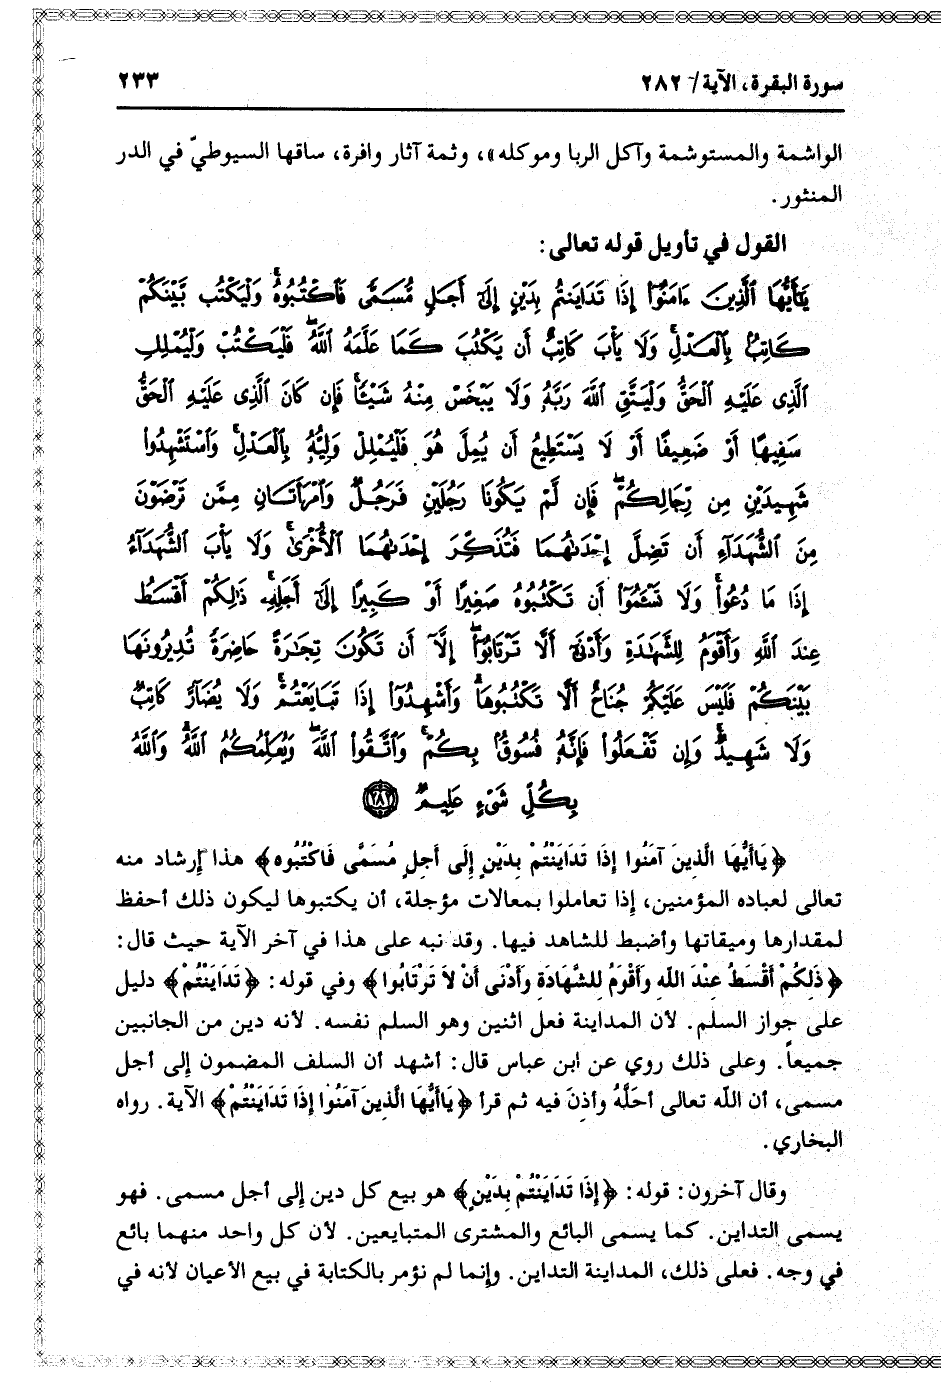 سورة البقرة، الآية/ ٢٨٢
٢٣٣
الواشمة والمستوشمة وآكل الربا وموكله»، وثمة آثار وافرة، ساقها السيوطيّ في الدر
المنثور.
القول في تأويل قوله تعالى:
يَٰٓأَيُّهَا ٱلَّذِينَ ءَامَنُوٓا۟ إِذَا تَدَايَنتُم بِدَيْنٍ إِلَىٰٓ أَجَلٍ مُّسَمًّى فَٱكْتُبُوهُ ۚ وَلْيَكْتُب بَّيْنَكُمْ
كَاتِبٌۢ بِٱلْعَدْلِ ۚ وَلَا يَأْبَ كَاتِبٌ أَن يَكْتُبَ كَمَا عَلَّمَهُ ٱللَّهُ ۚ فَلْيَكْتُبْ وَلْيُمْلِلِ
ٱلَّذِى عَلَيْهِ ٱلْحَقُّ وَلْيَتَّقِ ٱللَّهَ رَبَّهُۥ وَلَا يَبْخَسْ مِنْهُ شَيْـًٔا ۚ فَإِن كَانَ ٱلَّذِى عَلَيْهِ ٱلْحَقُّ
سَفِيهًا أَوْ ضَعِيفًا أَوْ لَا يَسْتَطِيعُ أَن يُمِلَّ هُوَ فَلْيُمْلِلْ وَلِيُّهُۥ بِٱلْعَدْلِ ۚ وَٱسْتَشْهِدُوا۟
شَهِيدَيْنِ مِن رِّجَالِكُمْ ۖ فَإِن لَّمْ يَكُونَا رَجُلَيْنِ فَرَجُلٌ وَٱمْرَأَتَانِ مِمَّن تَرْضَوْنَ
مِنَ ٱلشُّهَدَآءِ أَن تَضِلَّ إِحْدَىٰهُمَا فَتُذَكِّرَ إِحْدَىٰهُمَا ٱلْأُخْرَىٰ ۚ وَلَا يَأْبَ ٱلشُّهَدَآءُ
إِذَا مَا دُعُوا۟ ۚ وَلَا تَسْـَٔمُوٓا۟ أَن تَكْتُبُوهُ صَغِيرًا أَوْ كَبِيرًا إِلَىٰٓ أَجَلِهِۦ ۚ ذَٰلِكُمْ أَقْسَطُ
عِندَ ٱللَّهِ وَأَقْوَمُ لِلشَّهَٰدَةِ وَأَدْنَىٰٓ أَلَّا تَرْتَابُوٓا۟ ۖ إِلَّآ أَن تَكُونَ تِجَٰرَةً حَاضِرَةً تُدِيرُونَهَا
بَيْنَكُمْ فَلَيْسَ عَلَيْكُمْ جُنَاحٌ أَلَّا تَكْتُبُوهَا ۗ وَأَشْهِدُوٓا۟ إِذَا تَبَايَعْتُمْ ۚ وَلَا يُضَآرَّ كَاتِبٌ
وَلَا شَهِيدٌ ۚ وَإِن تَفْعَلُوا۟ فَإِنَّهُۥ فُسُوقٌۢ بِكُمْ ۗ وَٱتَّقُوا۟ ٱللَّهَ ۖ وَيُعَلِّمُكُمُ ٱللَّهُ ۗ وَٱللَّهُ
بِكُلِّ شَىْءٍ عَلِيمٌ ﴿٢٨٢﴾
﴿يَاأَيُّهَا الَّذِينَ آمَنُوا إِذَا تَدَايَنْتُمْ بِدَيْنٍ إِلَى أَجَلٍ مُسَمًّى فَاكْتُبُوه﴾ هذا إرشاد منه
تعالى لعباده المؤمنين، إذا تعاملوا بمعالات مؤجلة، أن يكتبوها ليكون ذلك أحفظ
لمقدارها وميقاتها وأضبط للشاهد فيها. وقد نبه على هذا في آخر الآية حيث قال:
﴿ذَلِكُمْ أَقْسَطُ عِنْدَ اللّهِ وَأَقْوَمُ لِلشَّهَادَةِ وَأَدْنَى أَنْ لاَ تَرْتَابُوا﴾ وفي قوله: ﴿تَدَايَنْتُمْ﴾ دليل
على جواز السلم. لأن المداينة فعل اثنين وهو السلم نفسه. لأنه دين من الجانبين
جميعاً. وعلى ذلك روي عن ابن عباس قال: أشهد أن السلف المضمون إلى أجل
مسمى، أن اللّه تعالى أحَلَّهُ وأذنَ فيه ثم قرأ ﴿يَاأَيُّهَا الَّذِينَ آمَنُوا إِذَا تَدَايَنْتُمْ﴾ الآية. رواه
البخاري.
وقال آخرون: قوله: ﴿إِذَا تَدَايَنْتُمْ بِدَيْنٍ﴾ هو بيع كل دين إلى أجل مسمى. فهو
يسمى التداين. كما يسمى البائع والمشترى المتبايعين. لأن كل واحد منهما بائع
في وجه. فعلى ذلك، المداينة التداين. وإنما لم نؤمر بالكتابة في بيع الأعيان لأنه في